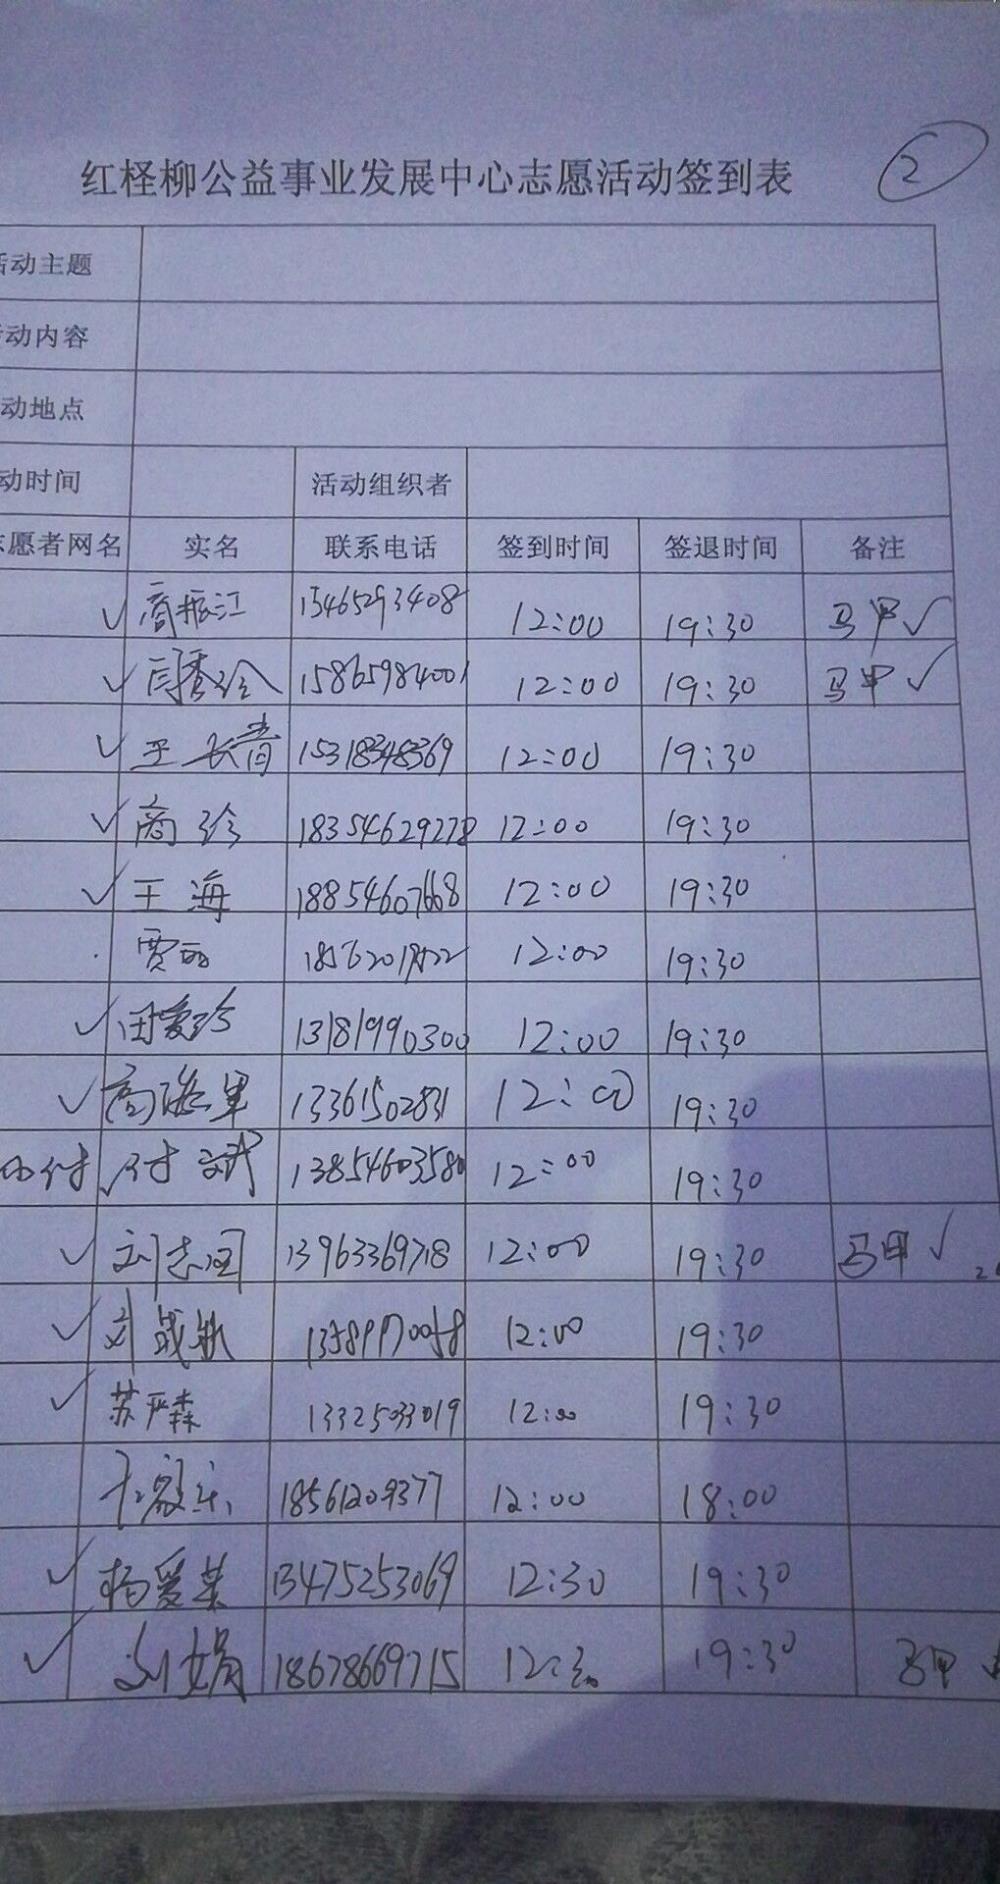 红柽柳公益事业发展中心志愿活动签到表 2
活动主题
动内容
动地点
动时间 活动组织者
志愿者网名 实名 联系电话 签到时间 签退时间 备注
✓ 商振江 15465293408 12:00 19:30 马甲✓
✓ 闫秀玲 15865984001 12:00 19:30 马甲✓
✓ 王长青 15318348369 12:00 19:30
✓ 商珍 18354629278 12:00 19:30
✓ 王海 18854607668 12:00 19:30
贾丽 12:00 19:30
✓ 田爱珍 13181990300 12:00 19:30
✓ 13361502831 12:00 19:30
付 ✓ 付斌 13854603580 12:00 19:30
✓ 刘志国 13963369718 12:00 19:30 马甲✓
✓ 刘战航 12:00 19:30
✓ 苏严森 13325033019 12:00 19:30
18561209377 12:00 18:00
✓ 杨爱英 13475253069 12:30 19:30
✓ 刘娟 18678669715 12:30 19:30 马甲